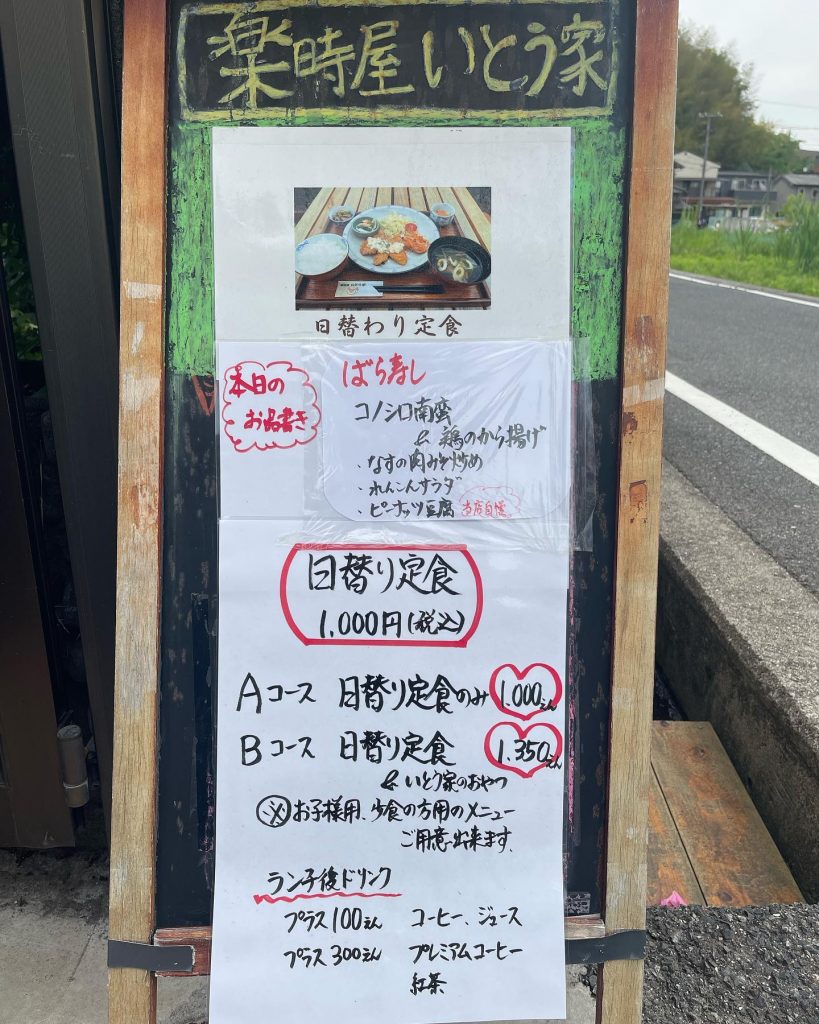 楽時屋 いとう家
日替わり定食
本日の
お品書き
ばら寿し
コノシロ南蛮
& 鶏のから揚げ
・なすの肉みそ炒め
・れんこんサラダ
・ピーナッツ豆腐 当店自慢
日替り定食
1,000円(税込)
Aコース 日替り定食のみ 1.000えん
Bコース 日替り定食 1.350えん
& いとう家のおやつ
※お子様用、少食の方用のメニュー
ご用意出来ます。
ランチ後ドリンク
プラス100えん コーヒー、ジュース
プラス300えん プレミアムコーヒー
紅茶